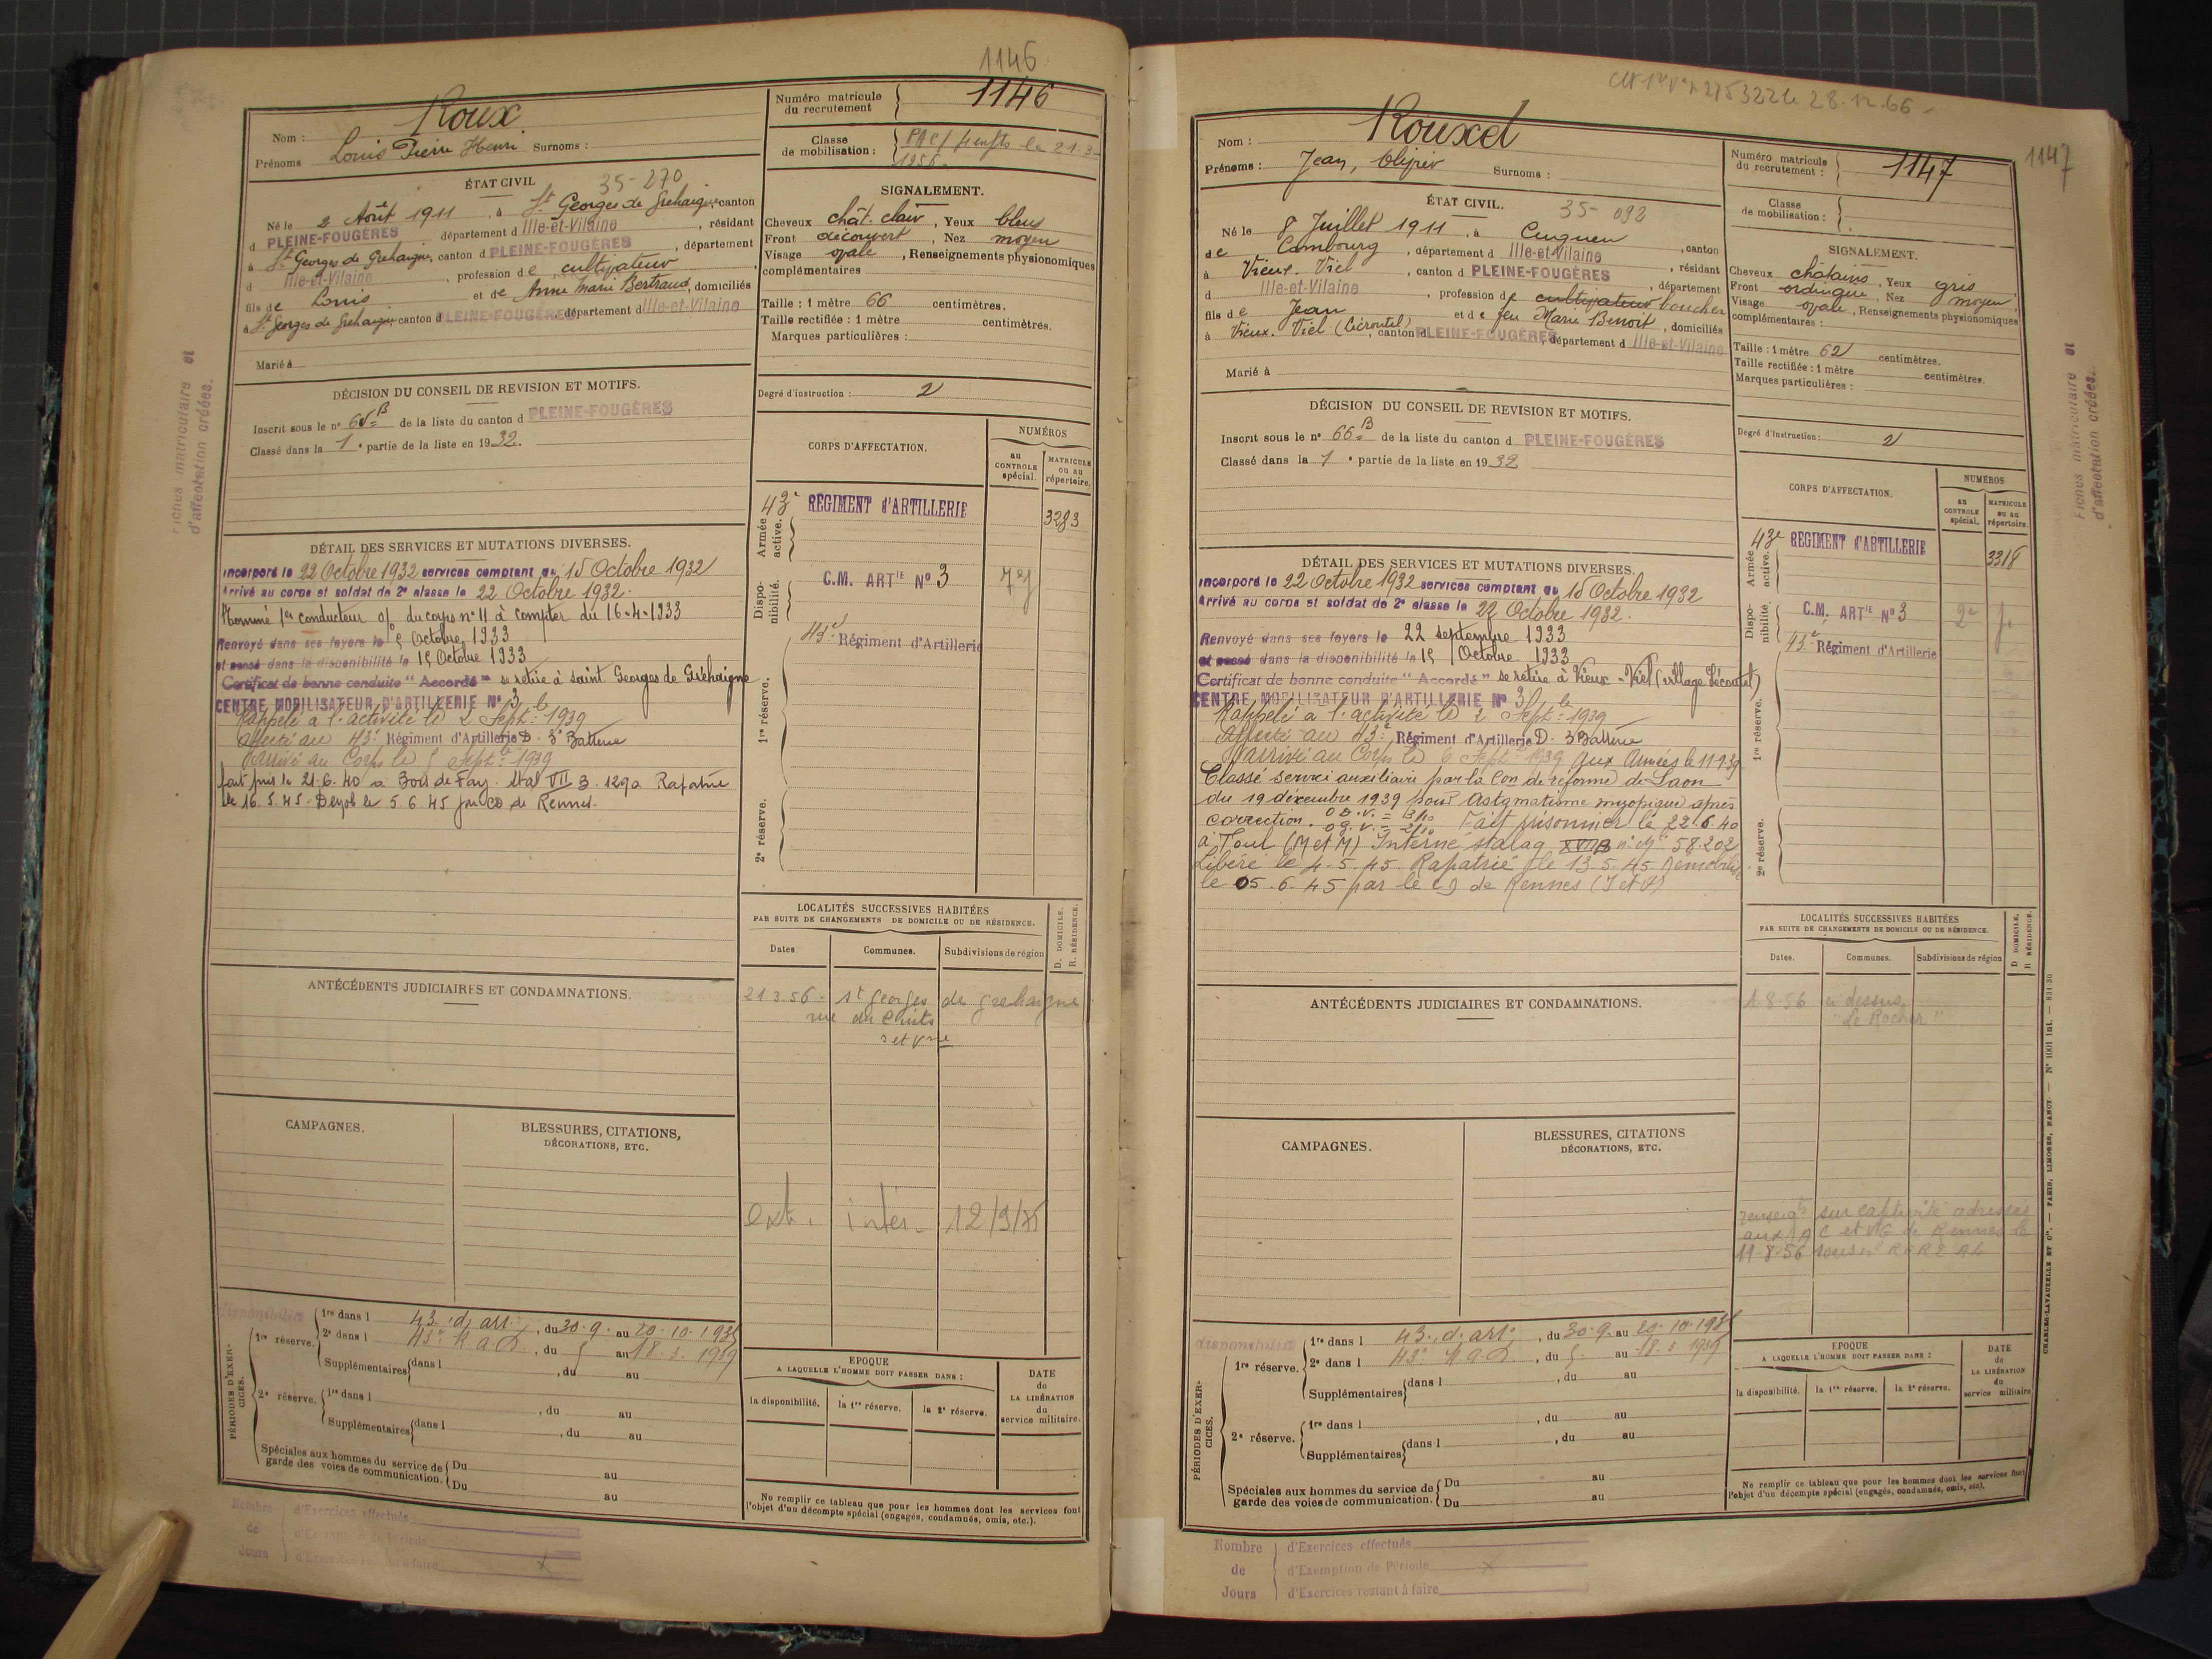 1146
Nom : Roux
Prénoms Louis Pierre Henri Surnoms :
Numéro matricule du recrutement 1146
Classe de mobilisation :
ÉTAT CIVIL 35-270
Né le 2 Août 1911, à St Georges de Grehaigne, canton
d PLEINE-FOUGÈRES département d Ille-et-Vilaine, résidant
à St Georges de Grehaigne, canton d PLEINE-FOUGÈRES, département
d Ille-et-Vilaine, profession de cultivateur
fils de Louis et de Anne Marie Bertraud, domiciliés
à St Georges de Grehaigne canton d PLEINE-FOUGÈRES département d Ille-et-Vilaine
Marié à
SIGNALEMENT.
Cheveux chât. clair, Yeux bleus
Front découvert, Nez moyen
Visage ovale, Renseignements physionomiques
complémentaires
Taille : 1 mètre 66 centimètres.
Taille rectifiée : 1 mètre centimètres.
Marques particulières :
Degré d'instruction : 2
DÉCISION DU CONSEIL DE REVISION ET MOTIFS.
Inscrit sous le n° de la liste du canton d PLEINE-FOUGÈRES
Classé dans la 1e partie de la liste en 1932.
CORPS D'AFFECTATION.
NUMÉROS
au CONTROLE spécial.
MATRICULE ou au répertoire.
Armée active.
43e RÉGIMENT d'ARTILLERIE 3283
Disponibilité.
C.M. ARTIE N° 3
1re réserve.
43e Régiment d'Artillerie
2e réserve.
DÉTAIL DES SERVICES ET MUTATIONS DIVERSES.
Incorporé le 22 Octobre 1932 services comptant du 15 Octobre 1932
Arrivé au corps et soldat de 2e classe le 22 Octobre 1932.
Nommé 1er conducteur o/ du corps n° 11 à compter du 16-4-1933
Renvoyé dans ses foyers le Octobre 1933
et passé dans la disponibilité le 15 Octobre 1933
Certificat de bonne conduite "Accordé" se retire à Saint Georges de Gréhaigne
CENTRE MOBILISATEUR D'ARTILLERIE N° 3
Rappelé à l'activité le 2 Sept. 1939
affecté au 43e Régiment d'Artillerie D. 3e Batterie
Arrivé au Corps le 5 Sept. 1939
fait pris le 21.6.40 a Bois de Fay. Stal VII B. 1290 Rapatrié
le 16.5.45. Demob le 5.6.45 par CD de Rennes.
LOCALITÉS SUCCESSIVES HABITÉES
PAR SUITE DE CHANGEMENTS DE DOMICILE OU DE RÉSIDENCE.
Dates Communes. Subdivisions de région D. DOMICILE. R. RÉSIDENCE.
21.3.56. St georges de grehaigne
rue du Puits
ext. inter. 12/9/75
ANTÉCÉDENTS JUDICIAIRES ET CONDAMNATIONS.
CAMPAGNES.
BLESSURES, CITATIONS, DÉCORATIONS, ETC.
disponibilité
PÉRIODES D'EXERCICES.
1re réserve.
1re dans l 43e d'art, du 30.9. au 20-10-1935
2e dans l 43e R.A.D., du 5 au 18.3.1939
Supplémentaires dans l , du au
2e réserve.
1re dans l , du au
Supplémentaires dans l , du au
Spéciales aux hommes du service de garde des voies de communication. Du au
Du au
EPOQUE
A LAQUELLE L'HOMME DOIT PASSER DANS :
la disponibilité. la 1re réserve. la 2e réserve.
DATE de LA LIBÉRATION du service militaire.
Ne remplir ce tableau que pour les hommes dont les services font
l'objet d'un décompte spécial (engagés, condamnés, omis, etc.).
Nombre de Jours
d'Exercices effectués
d'Exercices restant à faire
Fiches matriculaire et
d'affectation créées.
1147
Nom : Rouxel
Prénoms : Jean, Surnoms :
Numéro matricule du recrutement : 1147
Classe de mobilisation :
ÉTAT CIVIL. 35-092
Né le 8 Juillet 1911, à Cuguen, canton
de Combourg, département d Ille-et-Vilaine, résidant
à Vieux-Viel, canton d PLEINE-FOUGÈRES, département
d Ille-et-Vilaine, profession de cultivateur boucher
fils de Jean et de feu Marie Benoit, domiciliés
à Vieux-Viel, canton d PLEINE-FOUGÈRES, département d Ille-et-Vilaine
Marié à
SIGNALEMENT.
Cheveux châtains, Yeux gris
Front ordinaire, Nez moyen
Visage ovale, Renseignements physionomiques
complémentaires :
Taille : 1 mètre 62 centimètres.
Taille rectifiée : 1 mètre centimètres.
Marques particulières :
Degré d'instruction : 2
DÉCISION DU CONSEIL DE REVISION ET MOTIFS.
Inscrit sous le n° 66 B de la liste du canton d PLEINE-FOUGÈRES
Classé dans la 1e partie de la liste en 1932
CORPS D'AFFECTATION.
NUMÉROS
au CONTROLE spécial.
MATRICULE ou au répertoire.
Armée active.
43e RÉGIMENT d'ARTILLERIE 3318
Disponibilité.
C.M. ARTIE N° 3
43e Régiment d'Artillerie
1re réserve.
2e réserve.
DÉTAIL DES SERVICES ET MUTATIONS DIVERSES.
Incorporé le 22 Octobre 1932 services comptant du 15 Octobre 1932
Arrivé au corps et soldat de 2e classe le 22 Octobre 1932.
Renvoyé dans ses foyers le 22 septembre 1933
et passé dans la disponibilité le 15 Octobre 1933
Certificat de bonne conduite "Accordé" se retire à Vieux-Viel
CENTRE MOBILISATEUR D'ARTILLERIE N° 3
Rappelé à l'activité le 2 Sept. 1939
Affecté au 43e Régiment d'Artillerie D. 3 Batterie
Arrivé au Corps le 6 Sept. 1939 Aux Armées le 11.9.39
Classé service auxiliaire par la Con de réforme de Laon
du 19 décembre 1939 pour Astigmatisme myopique après
correction. Fait prisonnier le 22.6.40
à Toul (M et M) Interné stalag XVII B n° 58.202
Libéré le 4.5.45 Rapatrié le 13.5.45 Démobilisé
le 05.6.45 par le CD de Rennes (I et V)
LOCALITÉS SUCCESSIVES HABITÉES
PAR SUITE DE CHANGEMENTS DE DOMICILE OU DE RÉSIDENCE.
Dates. Communes. Subdivisions de région D DOMICILE. R RÉSIDENCE.
1-8-56 ci dessus
"Le Rocher"
renseigts sur captivité adressés
aux AC et VG de Rennes le
11-8-56
ANTÉCÉDENTS JUDICIAIRES ET CONDAMNATIONS.
CAMPAGNES.
BLESSURES, CITATIONS DÉCORATIONS, ETC.
disponibilité
PÉRIODES D'EXERCICES.
1re réserve.
1re dans l 43e d'art, du 30-9. au 20-10-1935
2e dans l 43e R.A.D., du 5. au 18.3 1939
Supplémentaires dans l , du au
2e réserve.
1re dans l , du au
Supplémentaires dans l , du au
Spéciales aux hommes du service de garde des voies de communication. Du au
Du au
EPOQUE
A LAQUELLE L'HOMME DOIT PASSER DANS :
la disponibilité. la 1re réserve. la 2e réserve.
DATE de LA LIBÉRATION du service militaire
Ne remplir ce tableau que pour les hommes dont les services font
l'objet d'un décompte spécial (engagés, condamnés, omis, etc).
Nombre de Jours
d'Exercices effectués
d'Exemption de Période
d'Exercices restant à faire
Fiches matriculaire et
d'affectation créées.
CHARLES-LAVAUZELLE ET Cie. — PARIS, LIMOGES, NANCY — N° 1001 Int. — 831-30